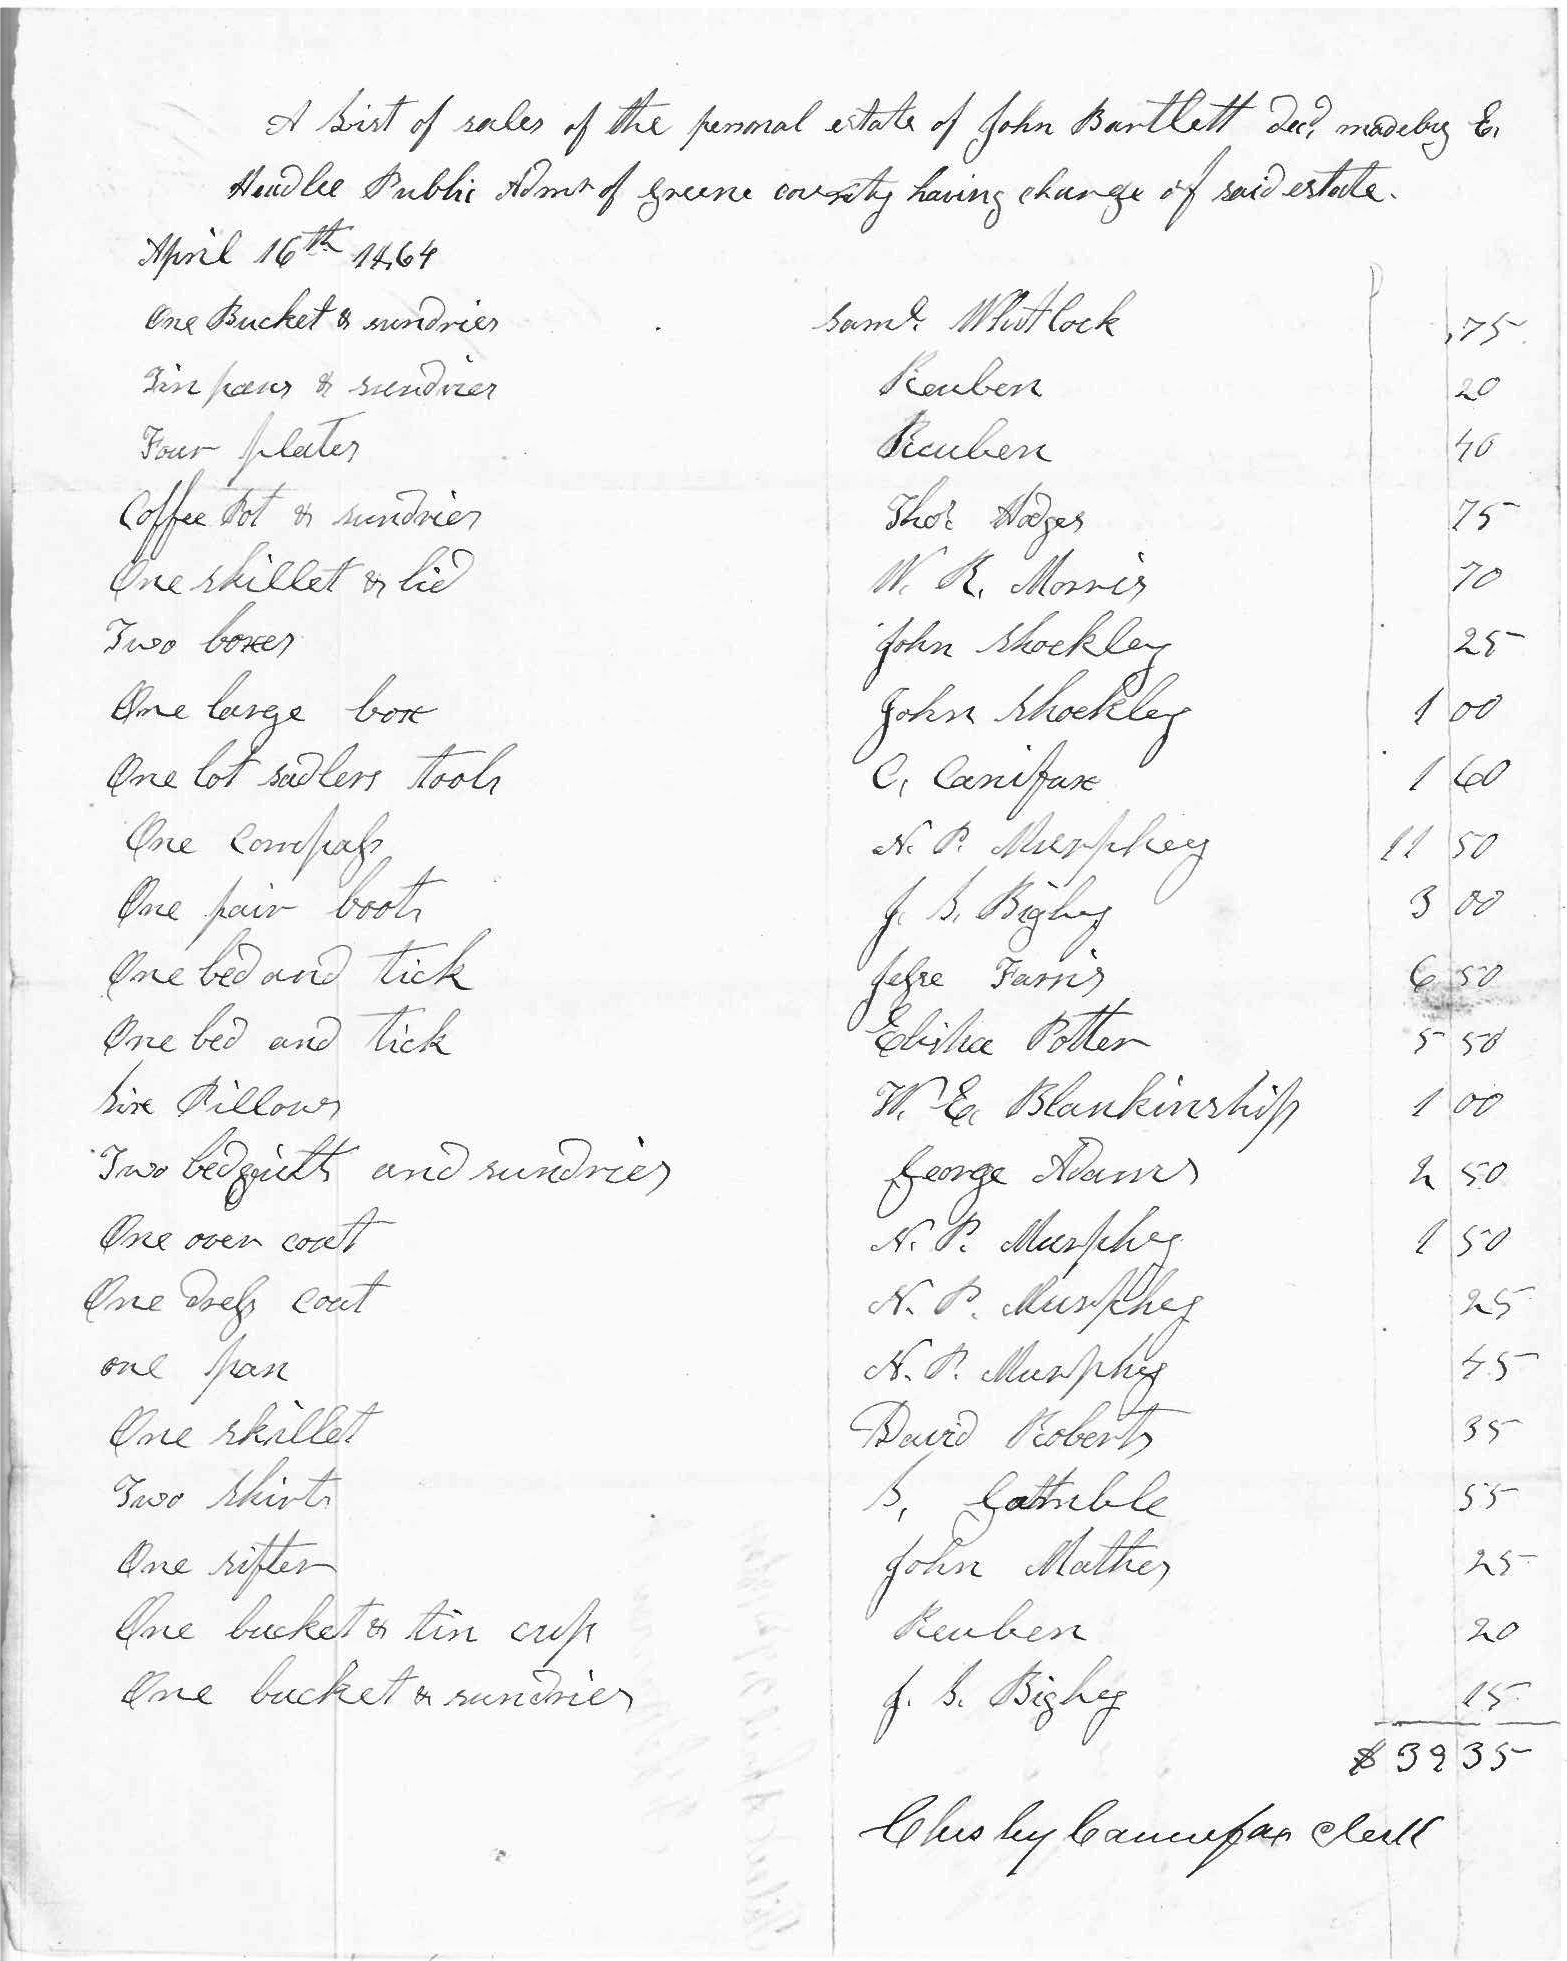 A List of sales of the personal estate of John Bartlett Decd. made by E.
Headlee Public Admr of Greene county having charge of said estate.
April 16th 1864
One Bucket & sundries Saml. Whitlock .75
Tin pans & sundries Reuben 20
Four plates Reuben 40
Coffee Pot & sundries Thos. Hodges 75
One skillet & lid W. R. Morris 70
Two boxes John Shockley 25
One large box John Shockley 1 00
One lot sadlers tools C. Canifax 1 60
One compass N. P. Murphey 11 50
One pair boots J. S. Bigbey 3 00
One bed and tick Jesse Farris 6 50
One bed and tick Elisha Potter 5 50
Six Pillows W. E. Blankinship 1 00
Two bedquilts and sundries George Adams 2 50
One over coat N. P. Murphey 1 50
One dress coat N. P. Murphey 25
one pan N. P. Murphey 45
One skillet David Roberts 35
Two Shirts S. Gamble 55
One sifter John Mathes 25
One bucket & tin cup Reuben 20
One bucket & sundries J. S. Bigbey 15
$ 39 35
Chesley Cannefax Clerk